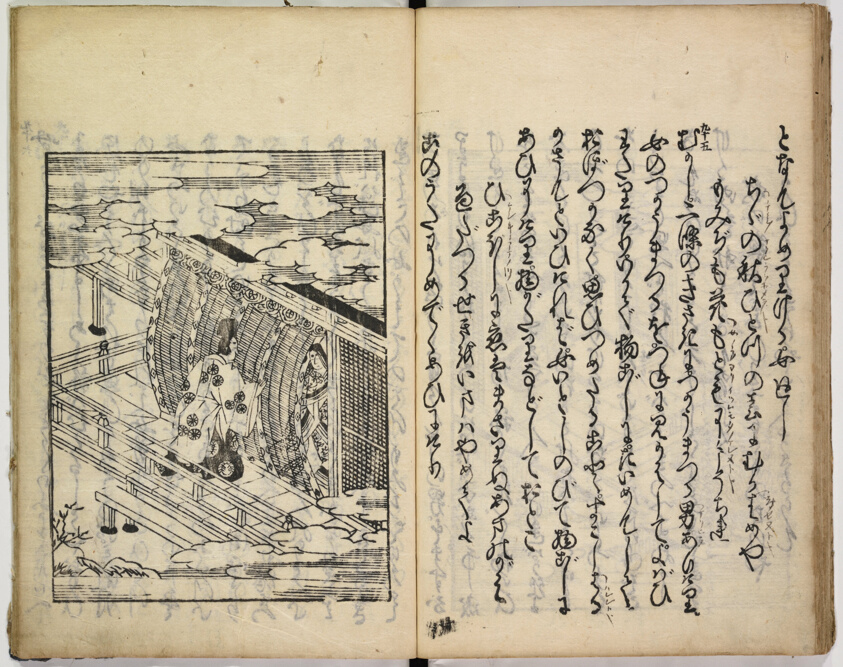 となんよめりける女返し
ちゞの秋ひとつの春にむかはめや
もみぢも花もともにこそちれ
九十五
むかし二條のきさきにつかうまつる男ありけり
女のつかうまつるをつねに見かはしてよばひ
わたりけりいかで物ごしにたいめんして
おぼつかなく思ひつめたることすこしはる
かさんといひければ女いとしのびて物ごしに
あひにけり物がたりなどしておとこ
ひこぼしに恋はまさりぬあまのがは
へだつるせきをいまはやめてよ
このうたにめでてあひにけり